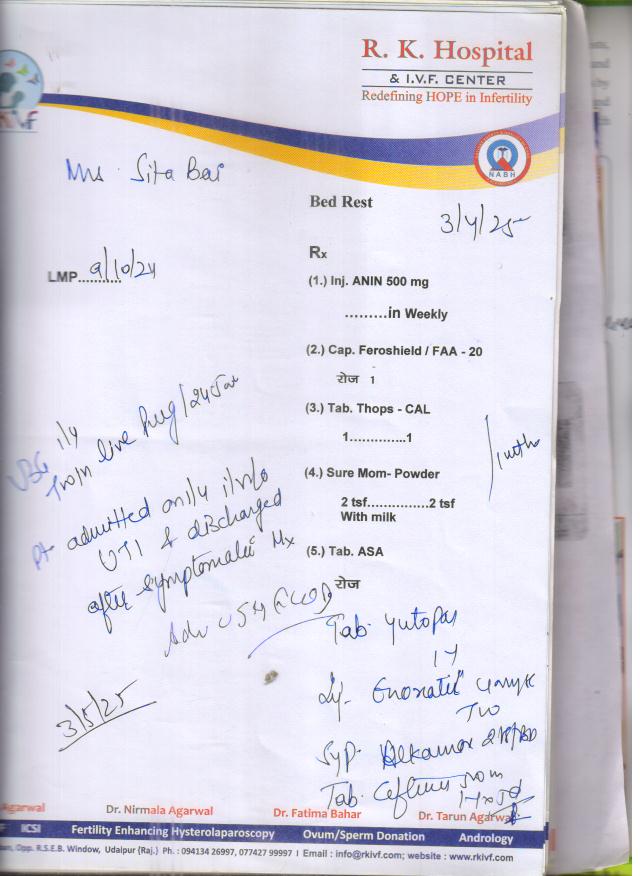 R. K. Hospital
& I.V.F. CENTER
Redefining HOPE in Infertility
NABH
Mrs Sita Bai
Bed Rest
3/4/25
LMP..........9/10/24
Rx
(1.) Inj. ANIN 500 mg
.........in Weekly
(2.) Cap. Feroshield / FAA - 20
रोज 1
(3.) Tab. Thops - CAL
1.............1
(4.) Sure Mom- Powder
2 tsf...............2 tsf
With milk
(5.) Tab. ASA
रोज
USG 1/4
live Preg/24
Pt admitted on 1/4 i/v/o
UTI & discharged
after symptomatic Mx
Adv USG
3/5/25
Tab.
Syp. Alkamax
Tab.
Agarwal
Dr. Nirmala Agarwal
Dr. Fatima Bahar
Dr. Tarun Agarwal
F ICSI Fertility Enhancing Hysterolaparoscopy Ovum/Sperm Donation Andrology
Opp. R.S.E.B. Window, Udaipur (Raj.) Ph. : 094134 26997, 077427 99997 I Email : info@rkivf.com; website : www.rkivf.com